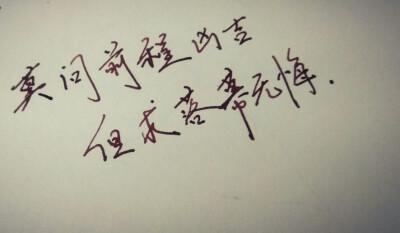 莫问前程凶吉
但求落幕无悔.